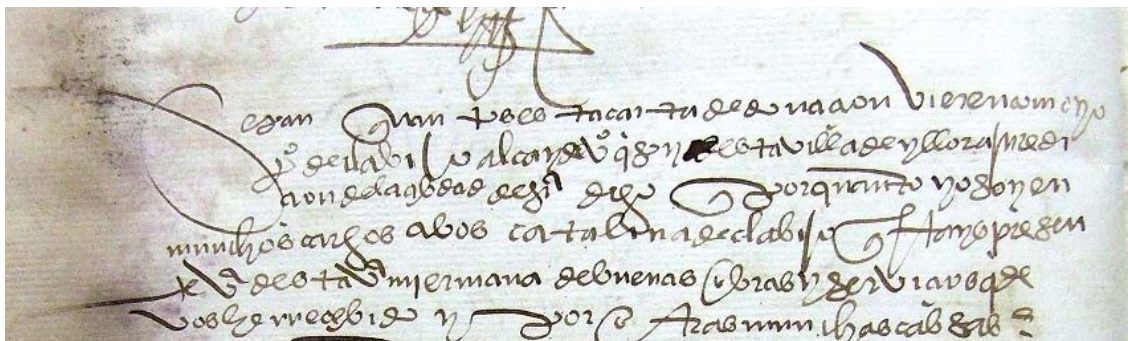 Sepan quantos esta carta de donaçion vieren como yo
pº de clavijo alcayde vº q soy desta villa de yllora juredi
çion de la çibdad de grª digo que por quanto yo soy en
munchos cargos a vos catalina de clavijo questays presen
te vª desta vª mi ermana de buenas obras y serviçios q de
vos he rreçebido y por otras munchas cabsas